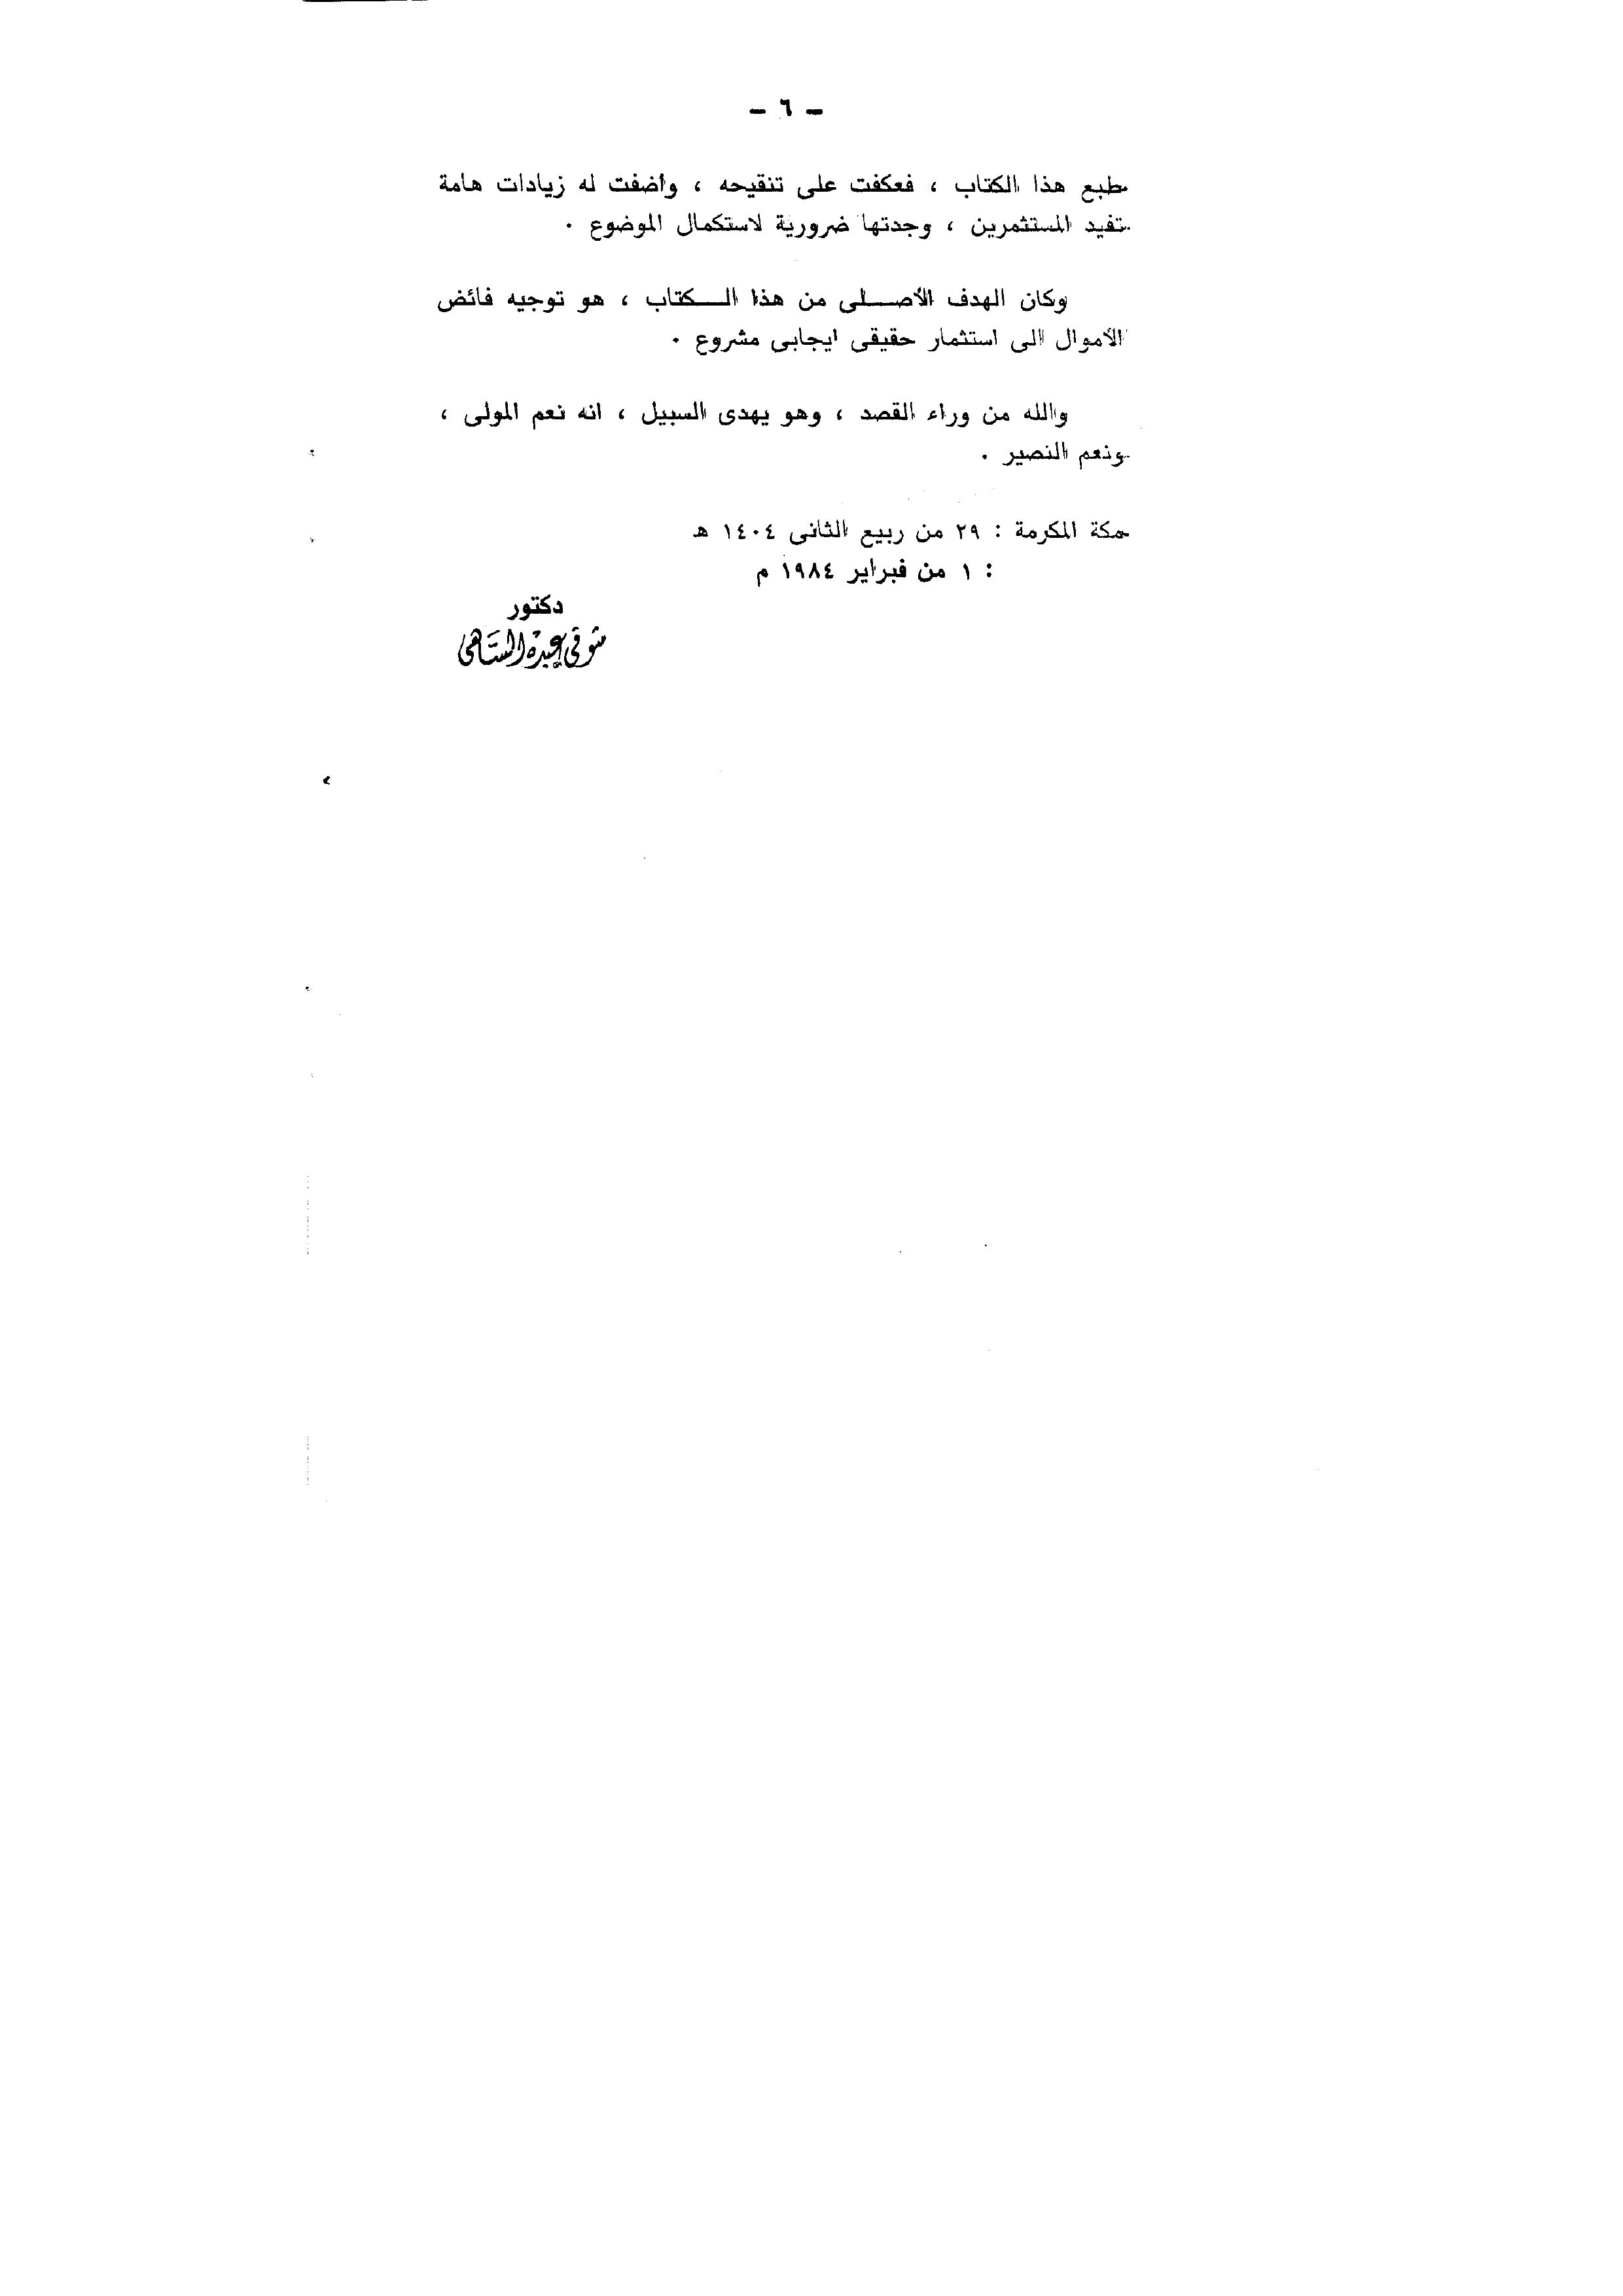 ـ ٦ ـ
طبع هذا الكتاب ، فعكفت على تنقيحه ، وأضفت له زيادات هامة
تفيد المستثمرين ، وجدتها ضرورية لاستكمال الموضوع ٠
وكان الهدف الأصـــلى من هذا الـــكتاب ، هو توجيه فائض
الأموال الى استثمار حقيقى ايجابى مشروع ٠
والله من وراء القصد ، وهو يهدى السبيل ، انه نعم المولى ،
ونعم النصير ٠
مكة المكرمة : ٢٩ من ربيع الثانى ١٤٠٤ هـ
: ١ من فبراير ١٩٨٤ م
دكتور
شوقى عبده الساهى